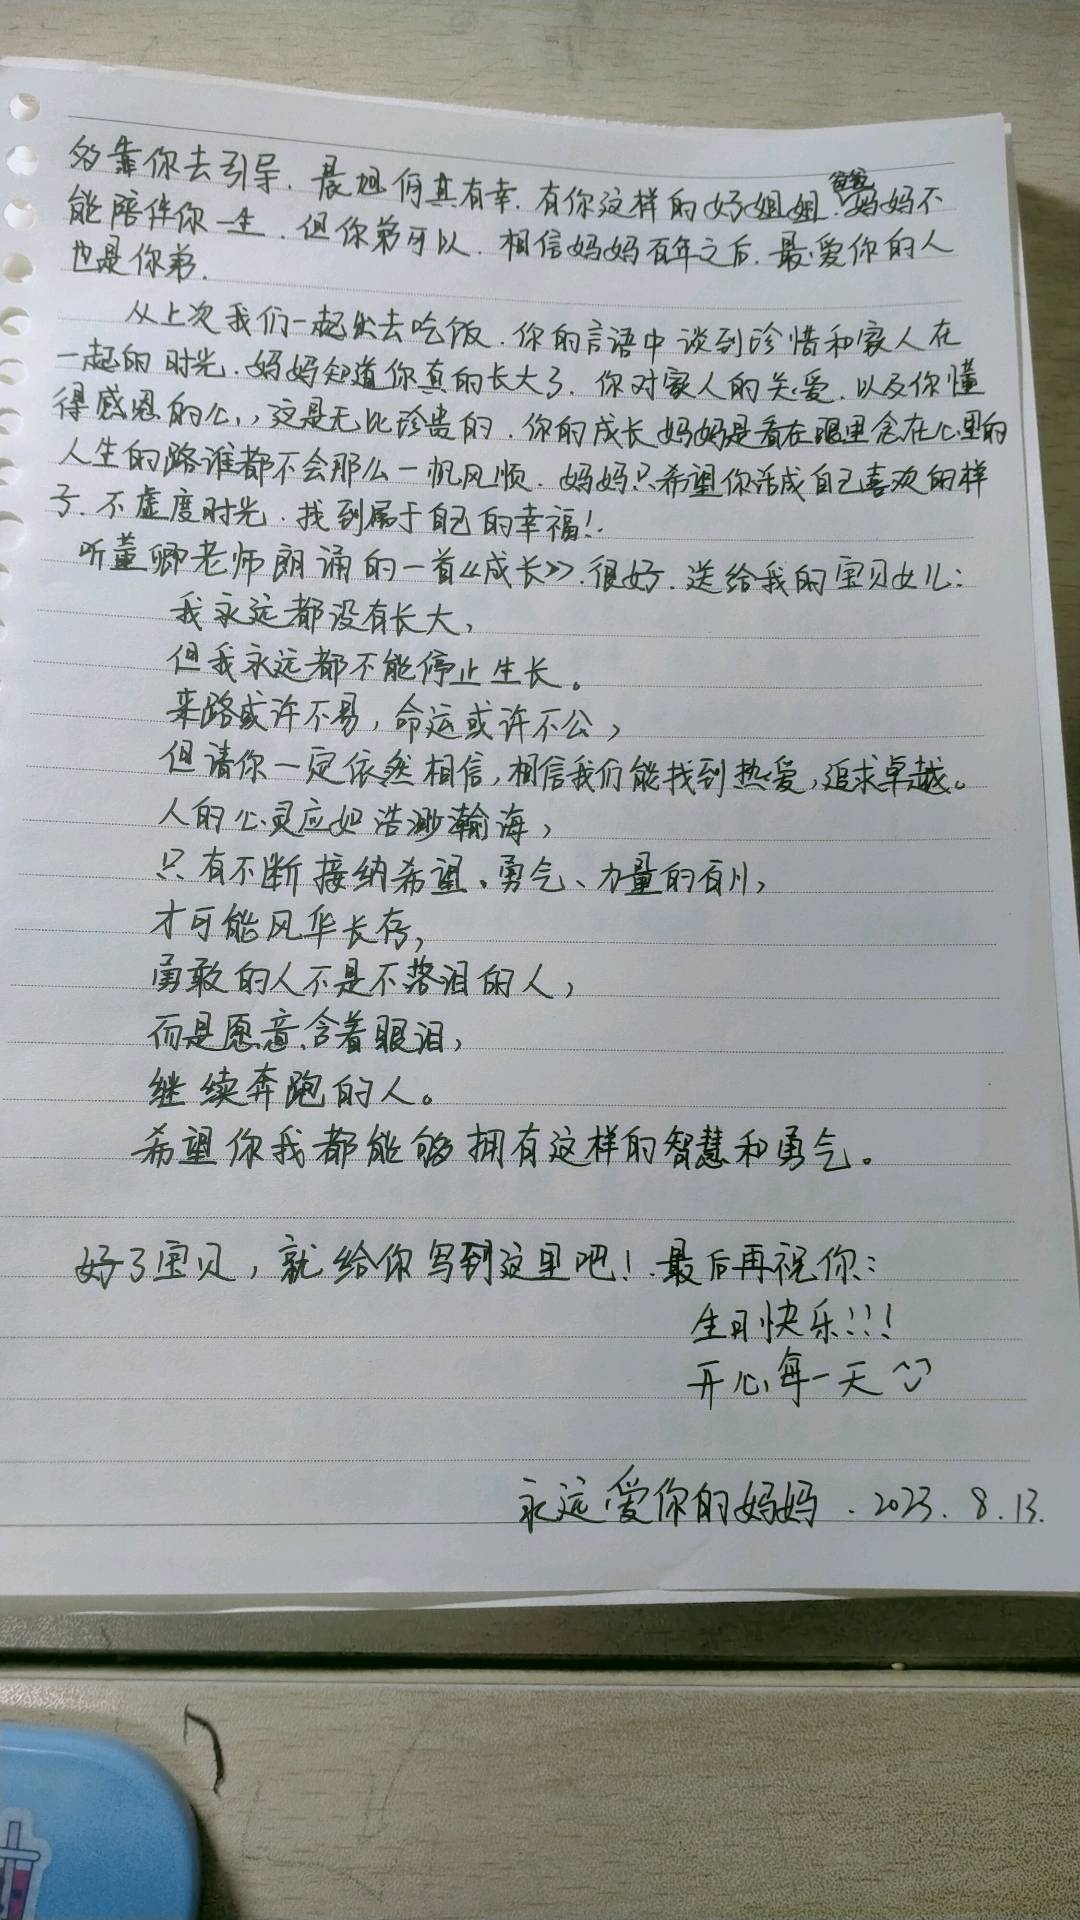 的靠你去引导.晨旭何其有幸.有你这样的好姐姐.爸爸妈妈不
能陪伴你一生.但你弟可以.相信妈妈百年之后.最爱你的人
也是你弟.
从上次我们一起出去吃饭.你的言语中谈到珍惜和家人在
一起的时光.妈妈知道你真的长大了.你对家人的关爱.以及你懂
得感恩的心,这是无比珍贵的.你的成长妈妈是看在眼里念在心里的
人生的路谁都不会那么一帆风顺.妈妈只希望你活成自己喜欢的样
子.不虚度时光.找到属于自己的幸福!.
听董卿老师朗诵的一首《成长》.很好.送给我的宝贝女儿:
我永远都没有长大,
但我永远都不能停止生长。
来路或许不易,命运或许不公,
但请你一定依然相信,相信我们能找到热爱,追求卓越。
人的心灵应如浩渺瀚海,
只有不断接纳希望、勇气、力量的百川,
才可能风华长存,
勇敢的人不是不落泪的人,
而是愿意含着眼泪,
继续奔跑的人。
希望你我都能够拥有这样的智慧和勇气。
好了宝贝,就给你写到这里吧!.最后再祝你:
生日快乐!!!
开心每一天
永远爱你的妈妈.2023.8.13.